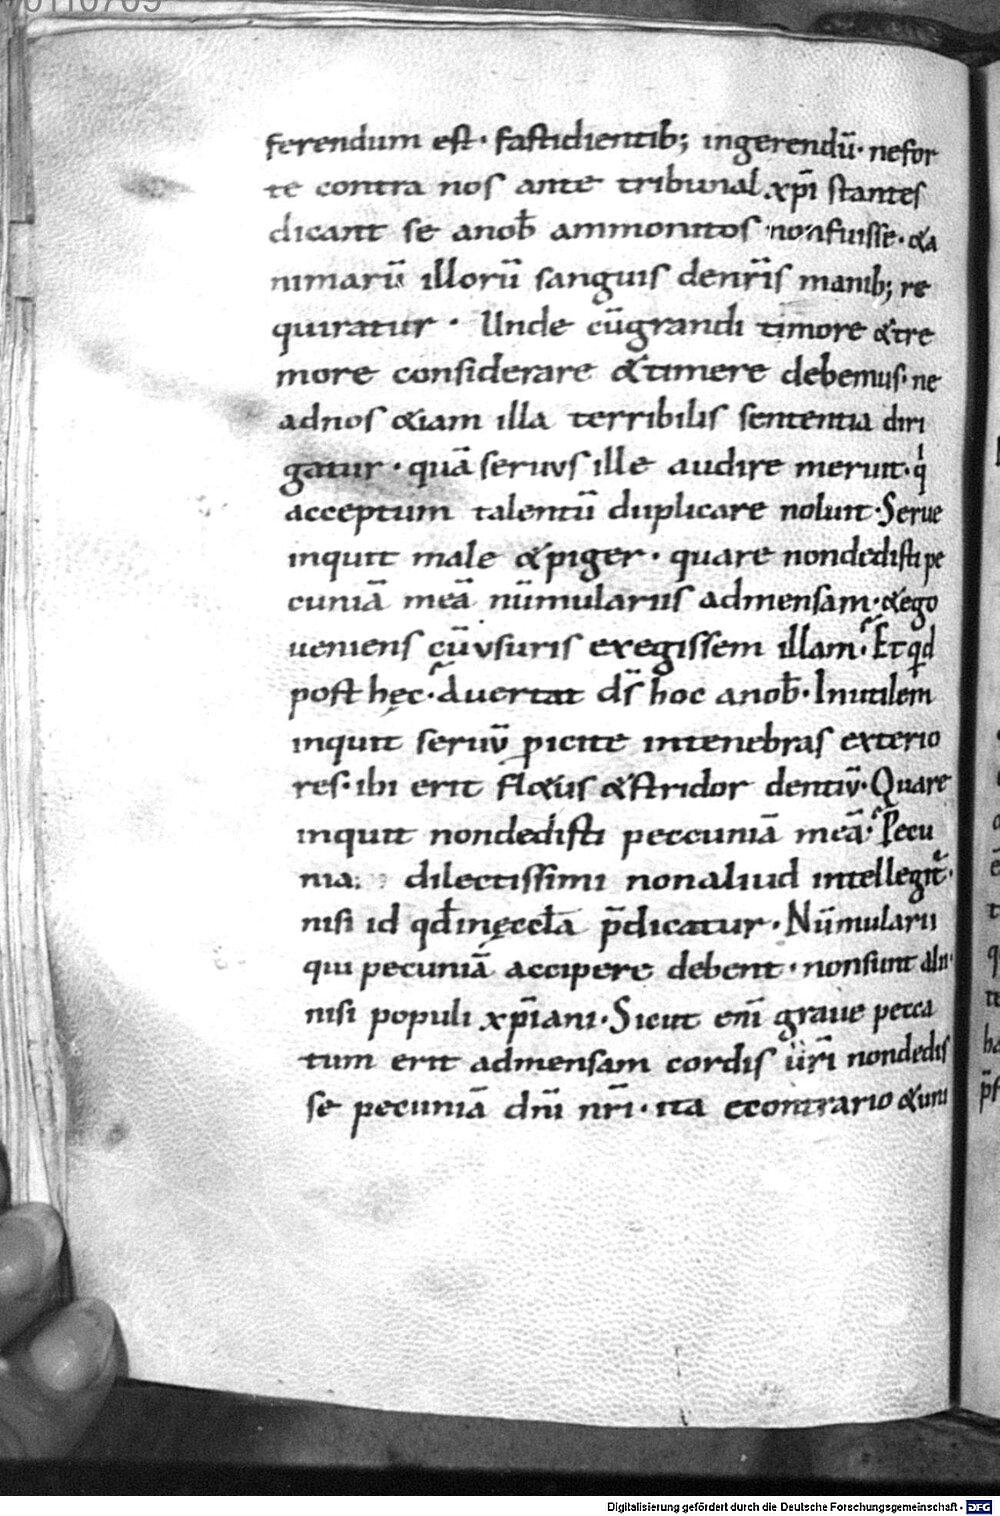 ferendum est· fastidientib; ingerendū· nefor
te contra nos ante tribunal xp̄i stantes
dicant se anob̄ ammonitos nonfuisse· &a
nimarū illorū sanguis denr̄is manib; re
quiratur· Unde cūgrandi timore &tre
more considerare &timere debemus· ne
adnos &iam illa terribilis sententia diri
gatur· quā seruus ille audire meruit· qi
acceptum talentū duplicare noluit· Serue
inquit male &piger· quare nondedisti pe
cuniā meā nūmulariis admensam· &ego
ueniens cūusuris exegissem illam· Et qd
post hęc· Auertat ds̄ hoc anob̄· Inutilem
inquit seruū proicite intenebras exterio
res· ibi erit fl&us &stridor dentiū· Quare
inquit nondedisti peccuniā meā· Pecu
nia dilectissimi nonaliud intellegit̄·
nisi id qd̄ inęccl̄a p̄dicatur· Nūmularii
qui pecuniā accipere debent· nonsunt alii
nisi populi xp̄iani· Sicut enī graue pecca
tum erit admensam cordis ūr̄i nondedis
se pecuniā dn̄i nr̄i· ita econtrario &uni
Digitalisierung gefördert durch die Deutsche Forschungsgemeinschaft - DFG